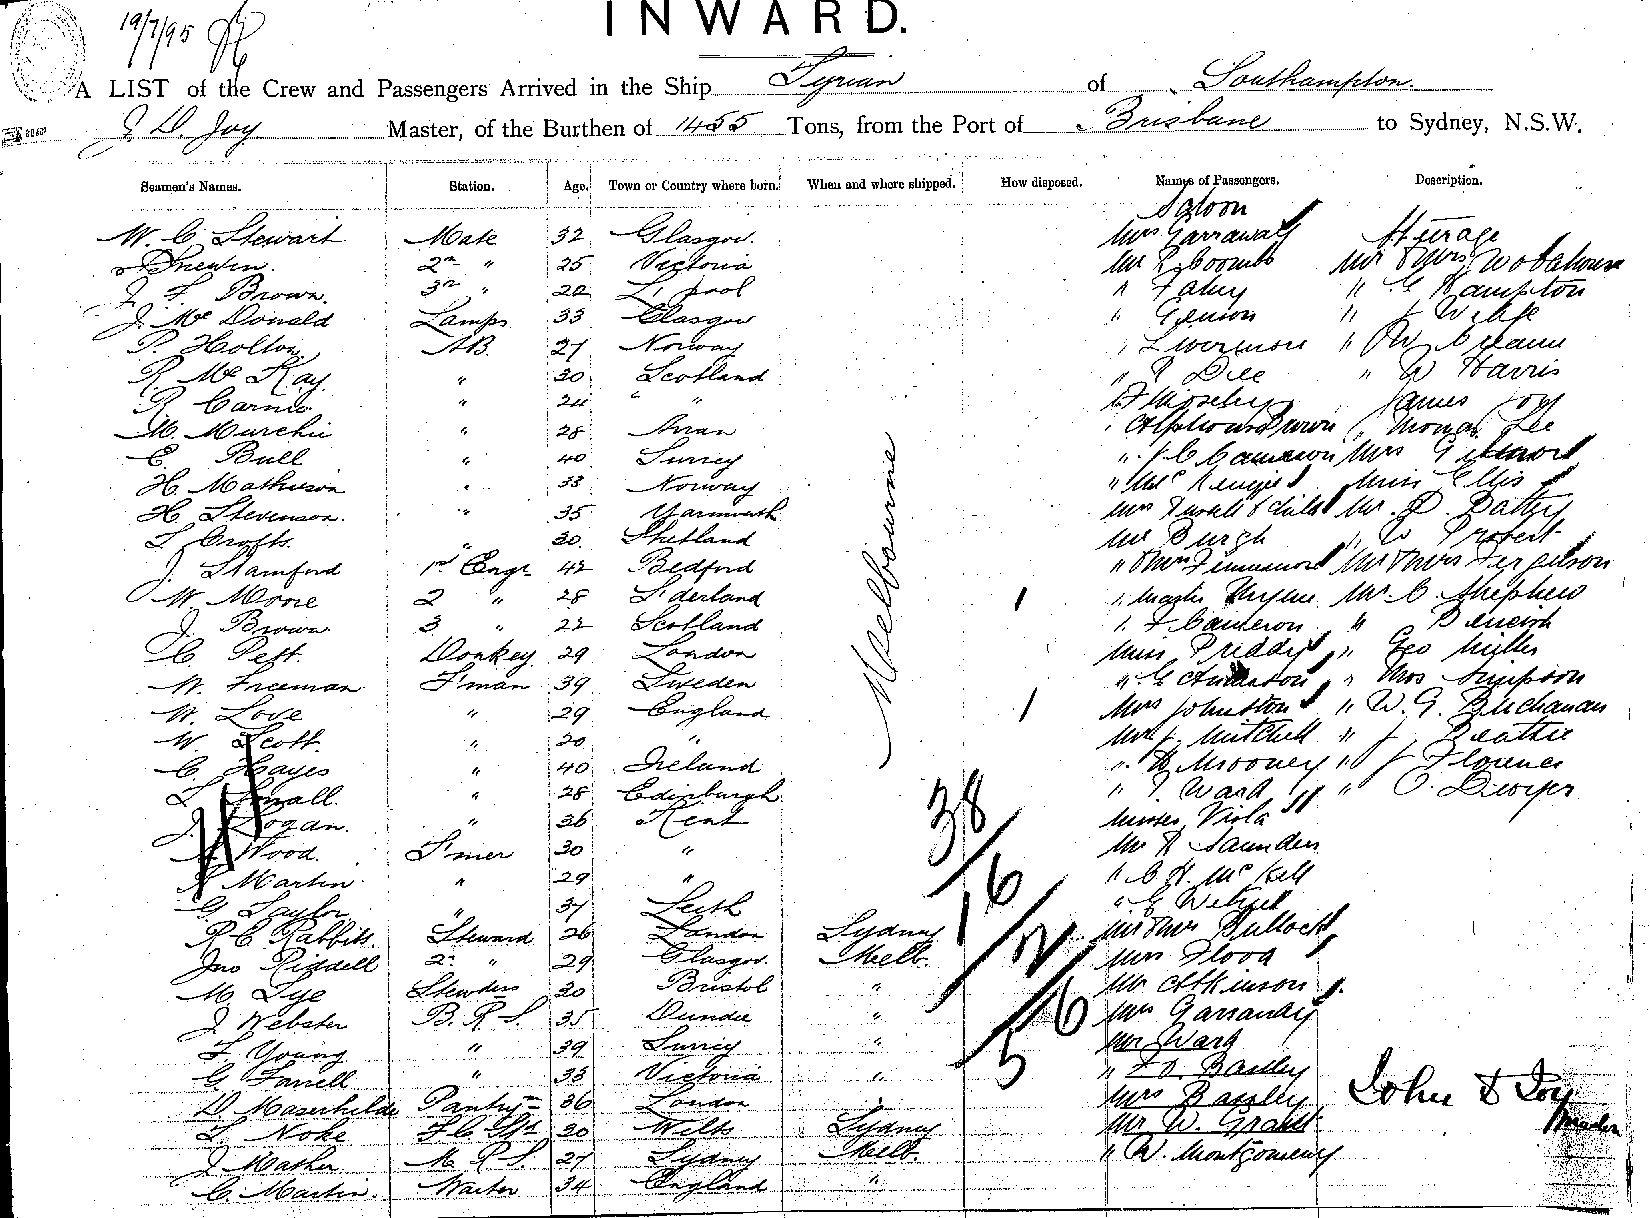 19/7/95
INWARD.
A LIST of the Crew and Passengers Arrived in the Ship Tyrian of Southampton.
J D Joy Master, of the Burthen of 1455 Tons, from the Port of Brisbane to Sydney, N.S.W.
Seamen's Names. Station. Age. Town or Country where born. When and where shipped. How disposed. Names of Passengers. Description.
Saloon
W. C. Stewart Mate 32 Glasgow. Mrs Garraway Steerage
2nd " 25 Victoria Mr R Coombs Mr & Mrs Wodehouse
J. F. Brown. 3rd " 22 L'pool " Fahey " G Hampton
J. McDonald Lamps 33 Glasgow " " J
P. Holton AB. 27 Norway " Livermore " W
R. McKay " 30 Scotland " " W Harris
R. Carnie " 24 " " James Joy
M. Murchie " 28 Arran " Brown " Thomas Lee
E. Bull " 40 Surrey " J. C Cameron Mrs
H. Matheson " 33 Norway " Miss Ellis
H. Stevenson. " 35 Yarmouth Mrs & child Mr. D. Battey
T. Crofts. " 30 Shetland Mr Burgh " W Probert
J. Stamford 1st Engr 42 Bedford " & Mrs Mr & Mrs Fergusson
W. Moore 2 " 28 S'derland " Master Mr. C. Shepherd
J. Brown 3 " 22 Scotland " F Cameron "
C. Pett. Donkey 29 London Miss Priddy " Geo Miller
W. Freeman F'man 39 Sweden " G Anderson " Thos Simpson
W. Love " 29 England Mrs Johnston " W. G. Buchanan
W. Scott. " 20 " Mr J. Mitchell " J Beattie
C. Hayes " 40 Ireland " H Mooney " J Florence
T. Small. " 28 Edinburgh " T. Ward " O. Dwyer
J. Logan. " 36 Kent Misses Viola
Wood. T'mer 30 " Mr R Saunders
Martin. " 29 " " C H. McKell
G. Taylor " 37 Leith " G Wetzel
R C Rabbits. Steward 26 London Sydney Mr & Mrs Bullock
Jno Riddell 2nd " 29 Glasgow. Melb. Mrs Flood
M. Lye Stewdess 30 Bristol " Mr Atkinson
J. Webster B. R. S. 35 Dundee " Mrs Garraway
T. Young " 39 Surrey " Mr Ward
G. Farrell " 33 Victoria " " Bailey
D. Pantry 36 London " Mrs Bailey
T. Noke 20 Wilts Sydney Mr W. Grant
J. Mather M. R. S. 27 Sydney Melb. " W. Montgomery
C. Martin. Waiter 34 England "
Melbourne
38
16
2
6
5
John D Joy
Master